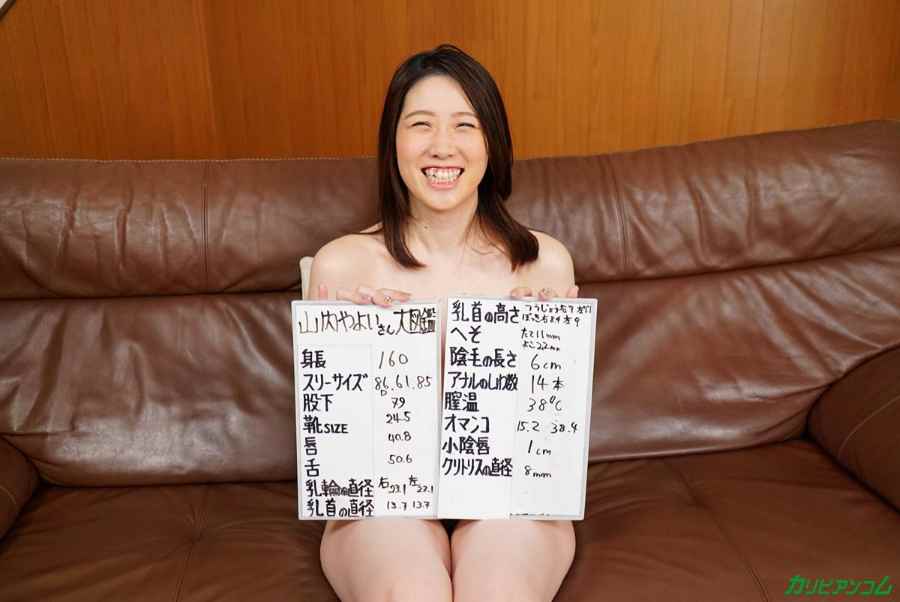 山内やよいさん大図鑑
身長 160
スリーサイズ 86.61.85
D
股下 79
靴SIZE 24.5
唇 40.8
舌 50.6
乳輪の直径 右23.1 左22.1
乳首の直径 13.7 13.7
乳首の高さ つうじょう右7 左7
ぼっき右9 左9
へそ たて11mm
よこ22mm
陰毛の長さ 6cm
アナルのしわ数 14本
膣温 38℃
オマンコ 15.2 38.9
小陰唇 1cm
クリトリスの直径 8mm
カリビアンコム